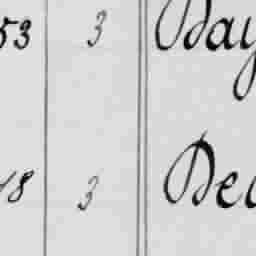 53 3 Day
18 3 Dec